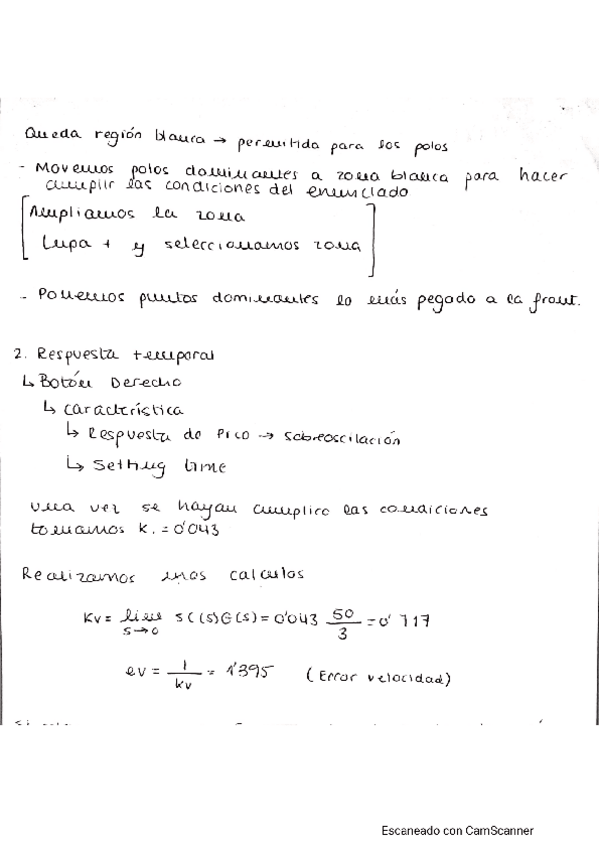 Queda región blanca → permitida para los polos
- Movemos polos dominantes a zona blanca para hacer
cumplir las condiciones del enunciado
[Ampliamos la zona
Lupa + y seleccionamos zona]
- Ponemos puntos dominantes lo más pegado a la front.
2. Respuesta temporal
↳ Botón Derecho
↳ característica
↳ Respuesta de Pico → sobreoscilación
↳ Setting time
Una vez se hayan cumplido las condiciones
tomamos K. = 0'043
Realizamos unos calculos
Kv = lim s→0 s C(s)G(s) = 0'043 50/3 = 0'717
ev = 1/kv = 1'395 (Error velocidad)
Escaneado con CamScanner